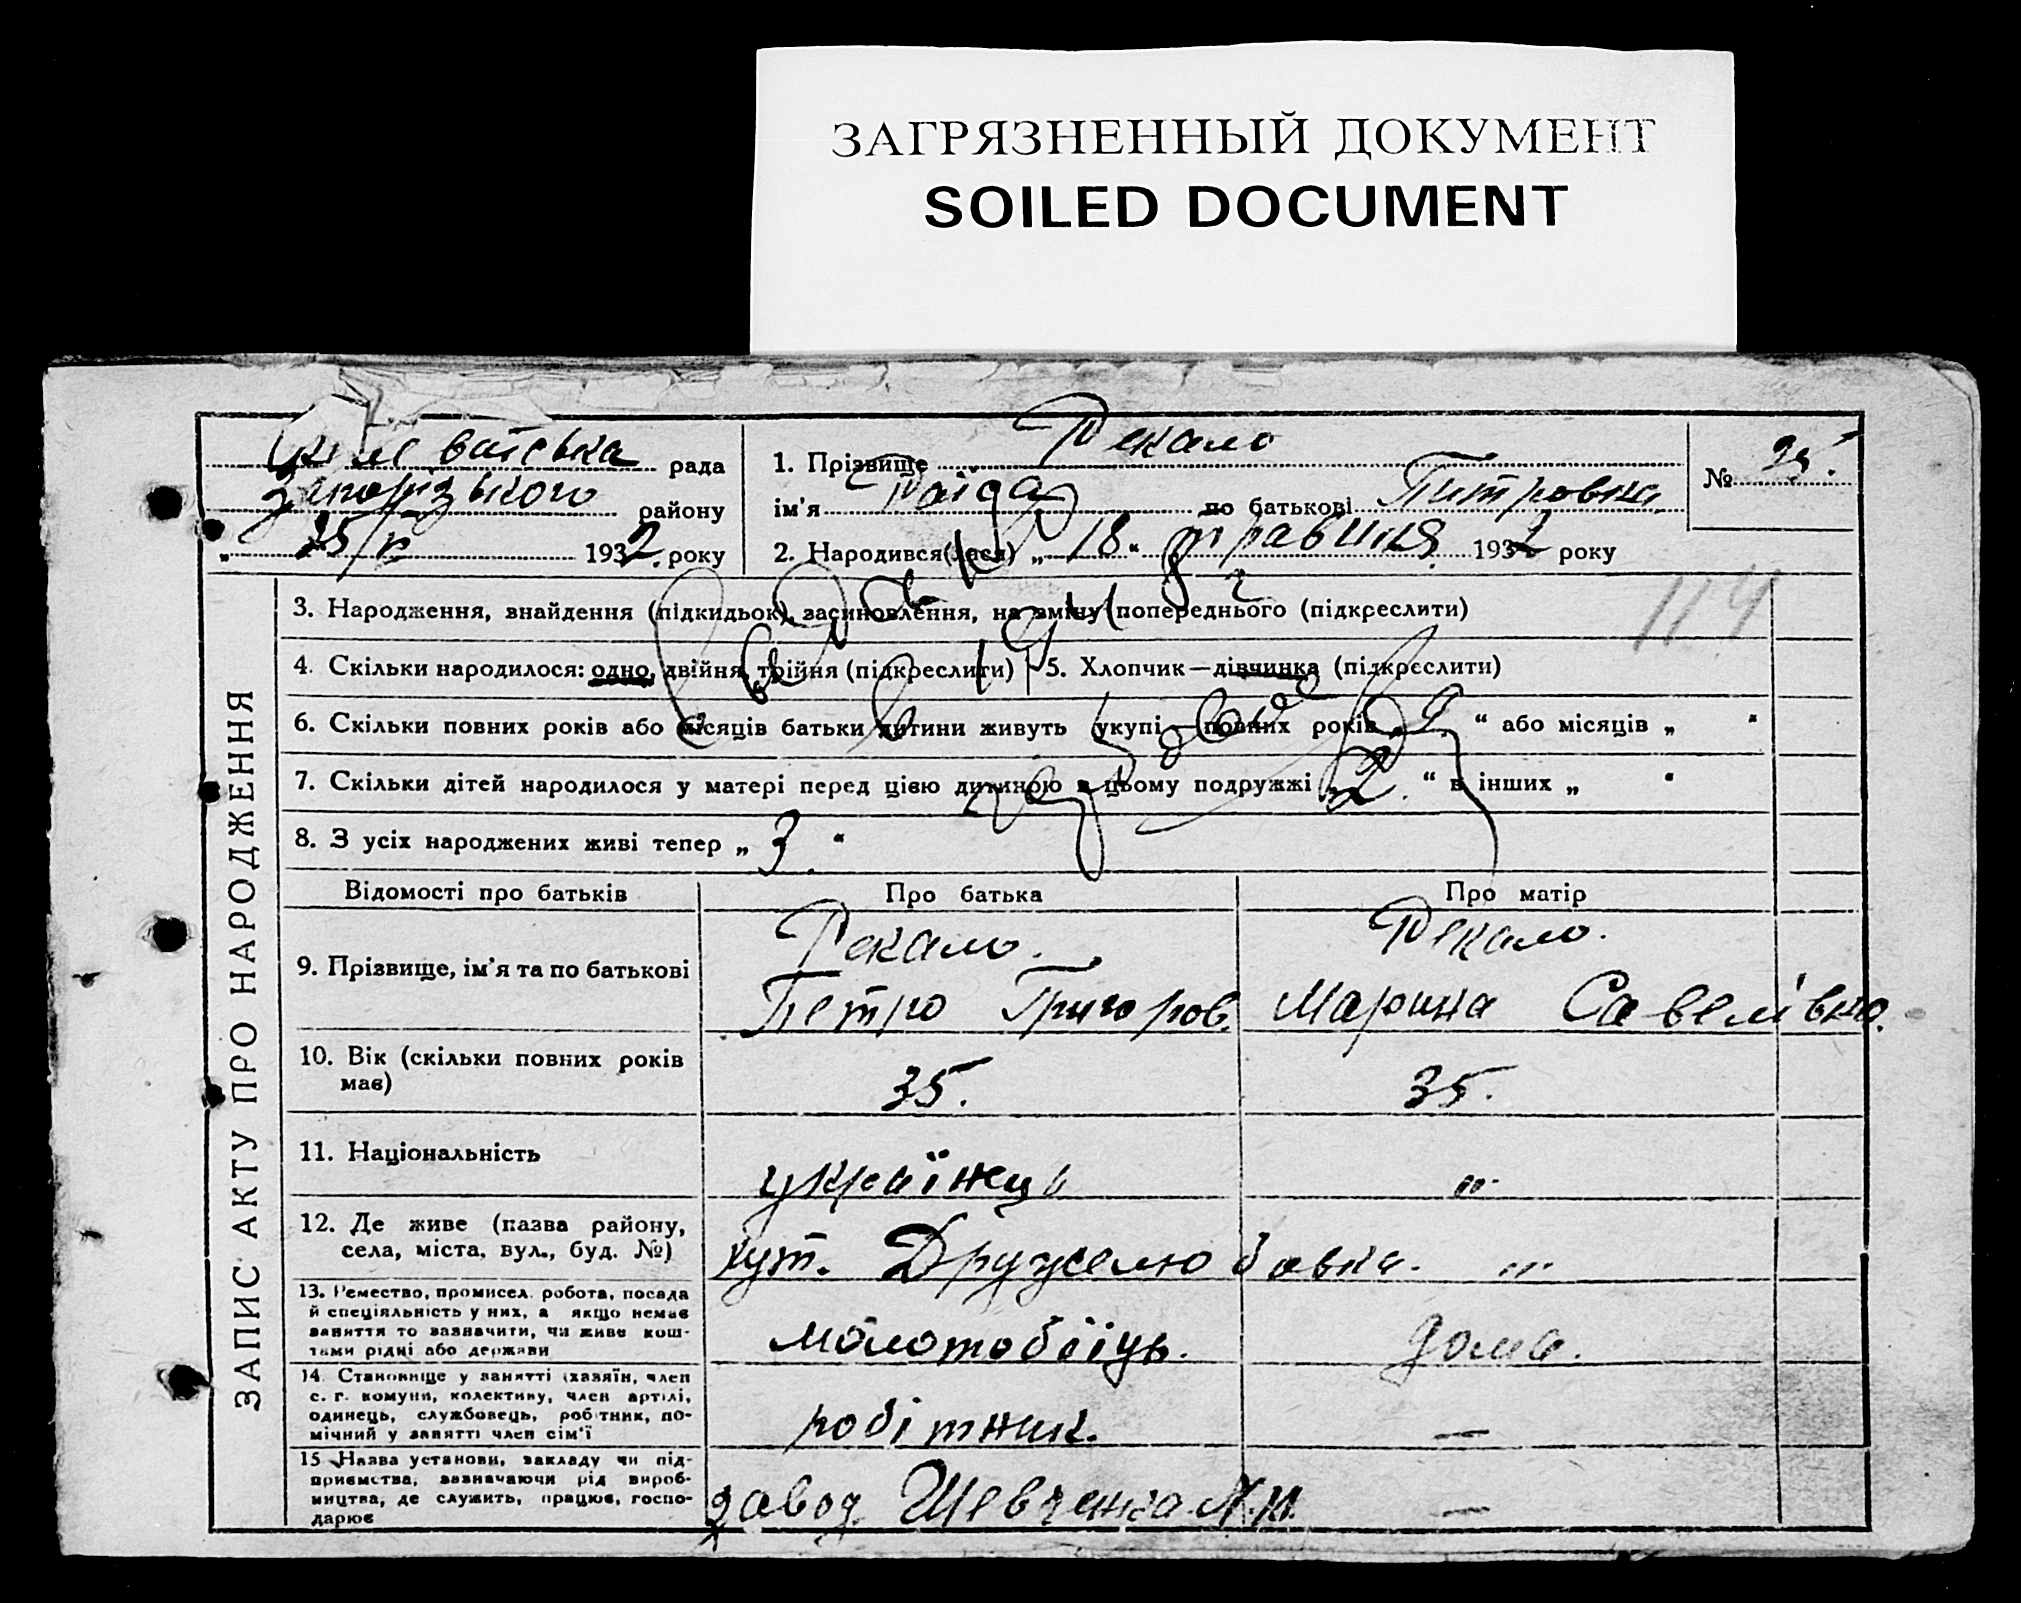 ЗАГРЯЗНЕННЫЙ ДОКУМЕНТ
SOILED DOCUMENT
рада
Запорізького району
„ 25/V 1932. року
1. Прізвище Рекало
ім'я Раїда по батькові Питровна
2. Народився(лася) „ 18 “ травиня 1932 року
№ 35.
114
ЗАПИС АКТУ ПРО НАРОДЖЕННЯ
3. Народження, внайдення (підкидьок), засиновлення, на зміну попереднього (підкреслити)
4. Скільки народилося: одно, двійня, трійня (підкреслити)
5. Хлопчик—дівчинка (підкреслити)
6. Скільки повних років або місяців батьки дитини живуть укупі – повних років „ 9 “ або місяців „ “
7. Скільки дітей народилося у матері перед цією дитиною в цьому подружжі „ 2. “ в інших „ “
8. З усіх народжених живі тепер „ 3. “
Відомості про батьків Про батька Про матір
9. Прізвище, ім'я та по батькові
Рекало. Рекало.
Петро Григоров. Марина Савелівна.
10. Вік (скільки повних років
має)
35. 35.
11. Національність
українець „.
12. Де живе (назва району,
села, міста, вул., буд. №)
хут. Дружелюбовка. „.
13. Ремество, промисел, робота, посада
й спеціяльність у них, а якщо немає
заняття то зазначити, чи живе кош-
тами рідні або держави
молотобіїць. дома.
14. Становище у занятті (хазяїн, член
с. г. комуни, колективу, член артілі,
одинець, службовець, робітник, по-
мічний у занятті член сім'ї
робітник. —
15. Назва установи, закладу чи під-
приємства, зазначаючи рід вироб-
ництва, де служить, працює, госпо-
дарює
завод Шевченка —